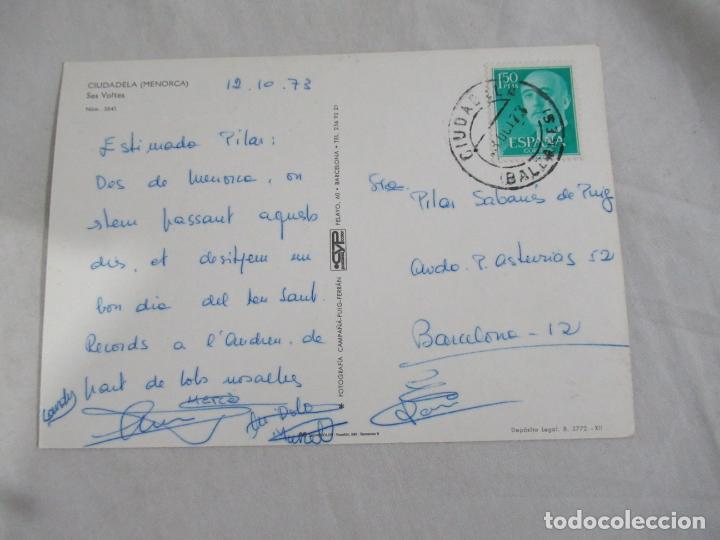 CIUDADELA (MENORCA)
Ses Voltes
Núm. 3845
12.10.73
Estimada Pilar:
Des de Menorca, on
stem passant aquests
dies, et desitjem un
bon dia del teu Sant.
Records a l'Andreu de
part de tots nosaltres
Mercè
FOTOGRAFIA CAMPAÑÁ-PUIG-FERRÁN
PELAYO, 60 • BARCELONA • TEL. 236 92 21
1'50
PTAS
ESPAÑA
CORREOS
CIUDADELA
(BALEARES)
Sra. Pilar Sabanés de Puig
Avda. P. Asturias 52
Barcelona-12
Depósito Legal: B. 3772 - XII
todocoleccion.net